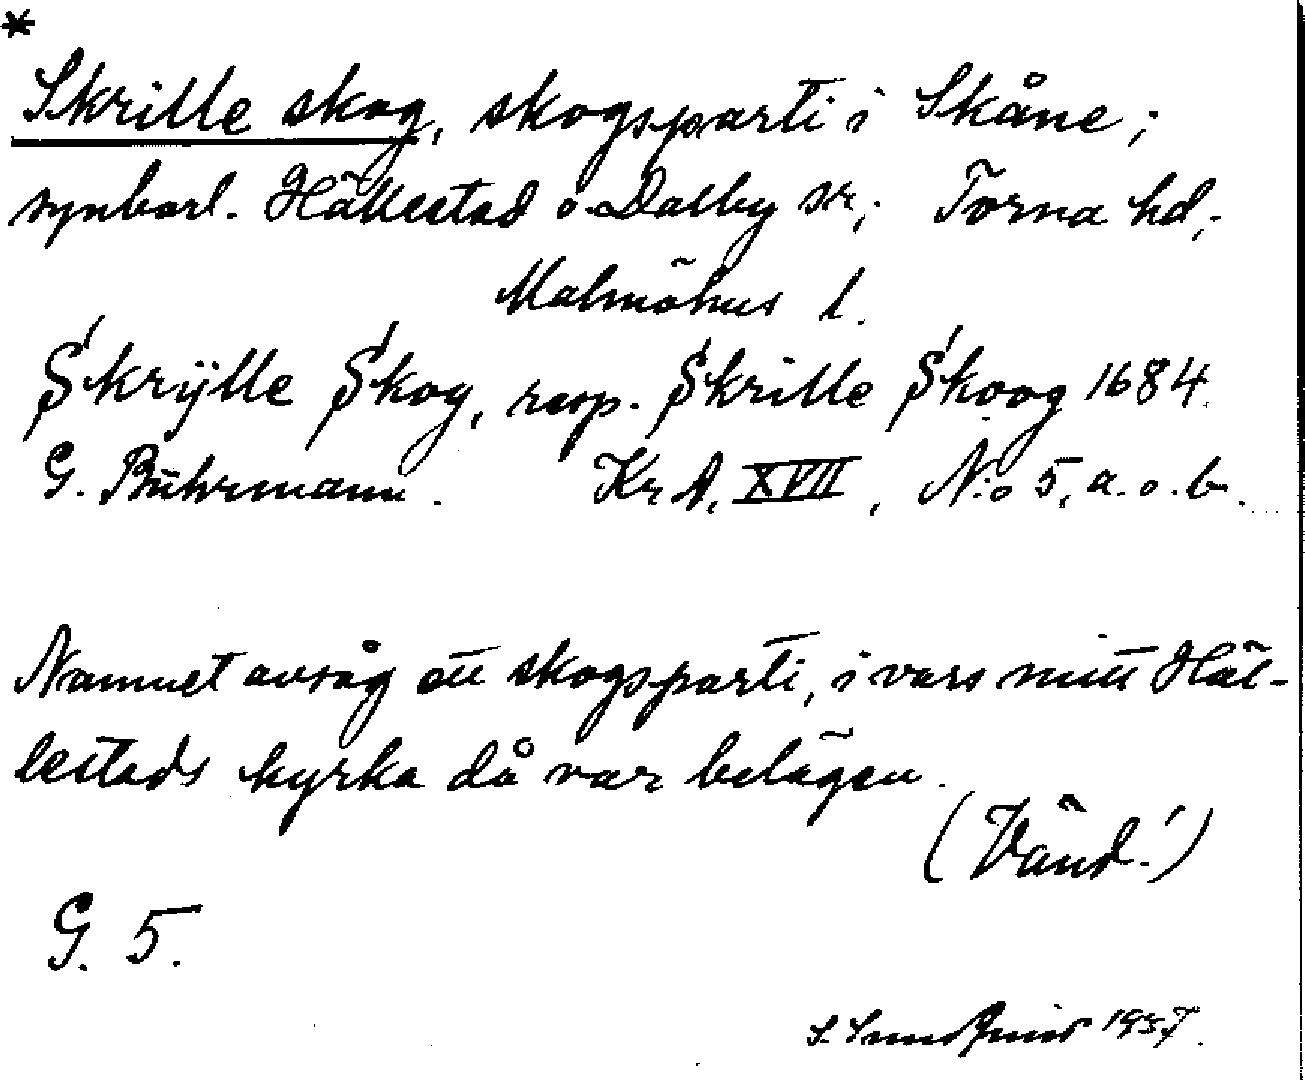 *
Skrille skog, skogsparti i Skåne;
synbarl. Hällestad o. Dalby sn; Torna hd,
Malmöhus l.
Skrÿlle Skog, resp. Skrille Skoog 1684.
G. Buhrmann. Kr A, XVII, N:o 5, a. o. b.
Namnet avsåg ett skogsparti, i vars mitt Häl-
lestads kyrka då var belägen.
(Vänd!)
G. 5.
1937.